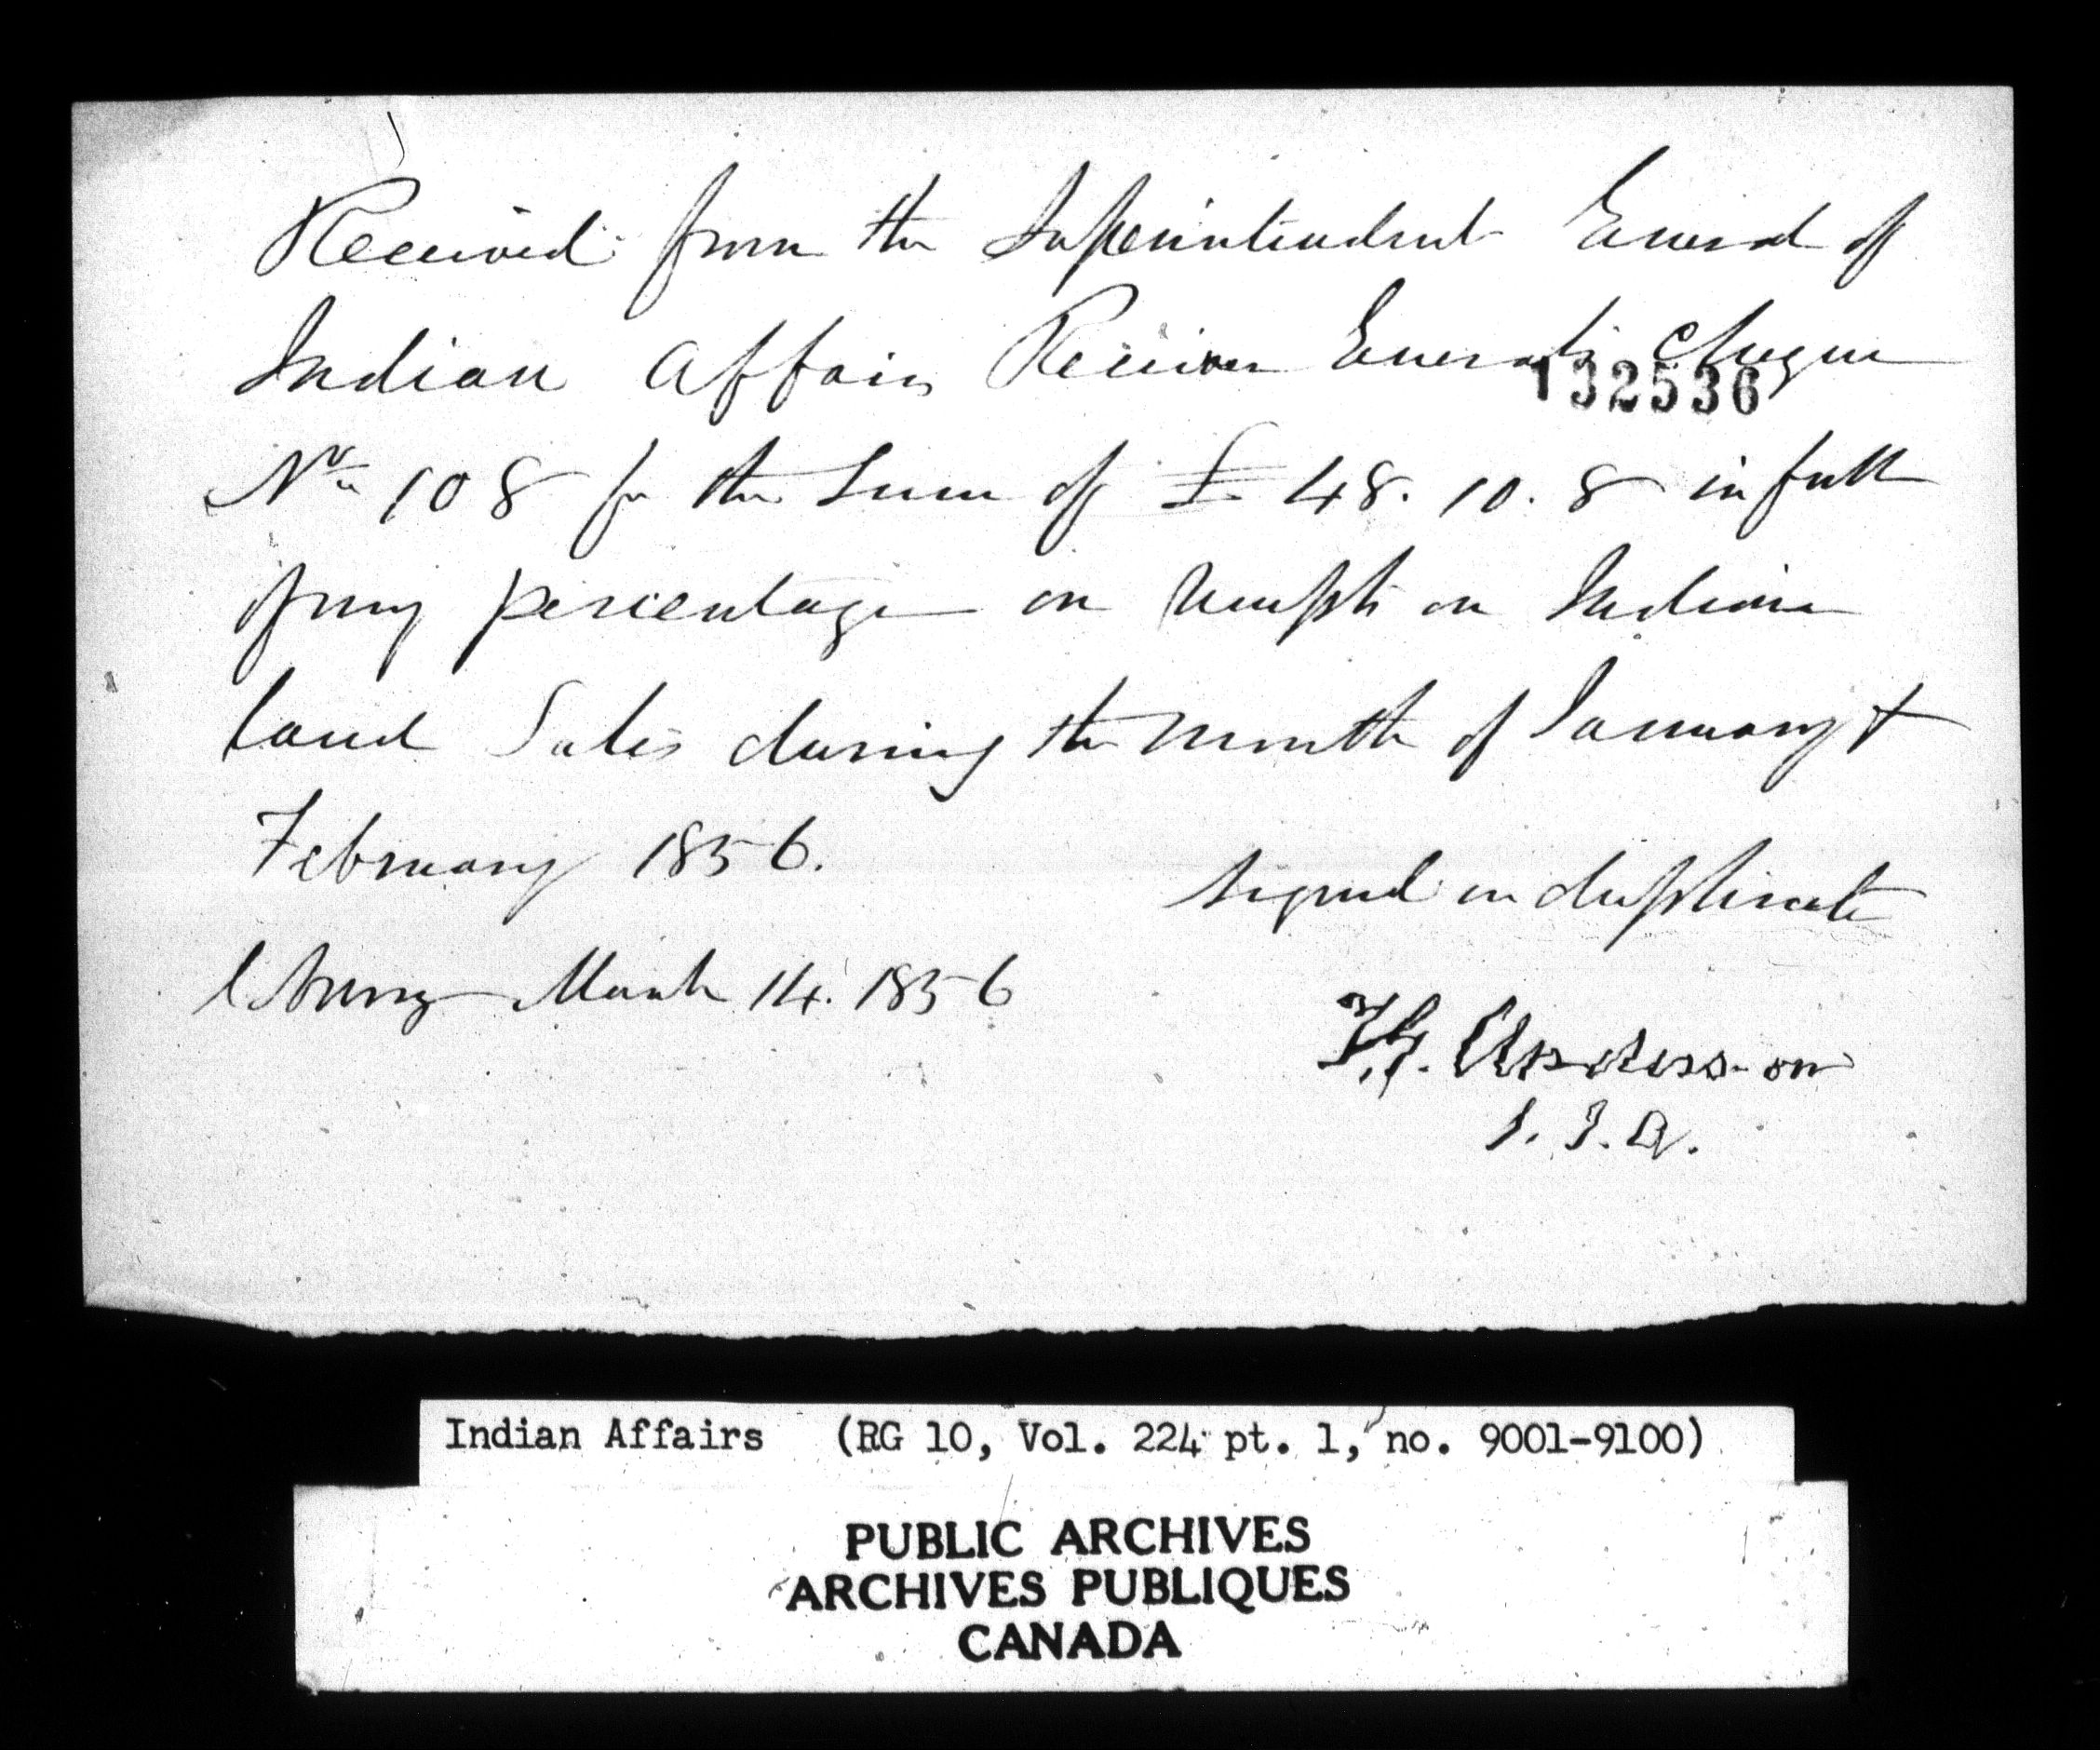 Received from the Superintendent General of
Indian Affairs Receiver General's Cheque
132536
No 108 for the Sum of £ 48. 10. 8 in full
of my percentage on receipts on Indian
land Sales during the month of January &
February 1856.
Signed in duplicate
Cobourg March 14. 1856
T.G. Anderson
S. I. A.
Indian Affairs (RG 10, Vol. 224 pt. 1, no. 9001-9100)
PUBLIC ARCHIVES
ARCHIVES PUBLIQUES
CANADA